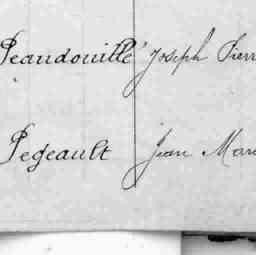 Peaudouille Joseph Pierr
Pegeault Jean Mari